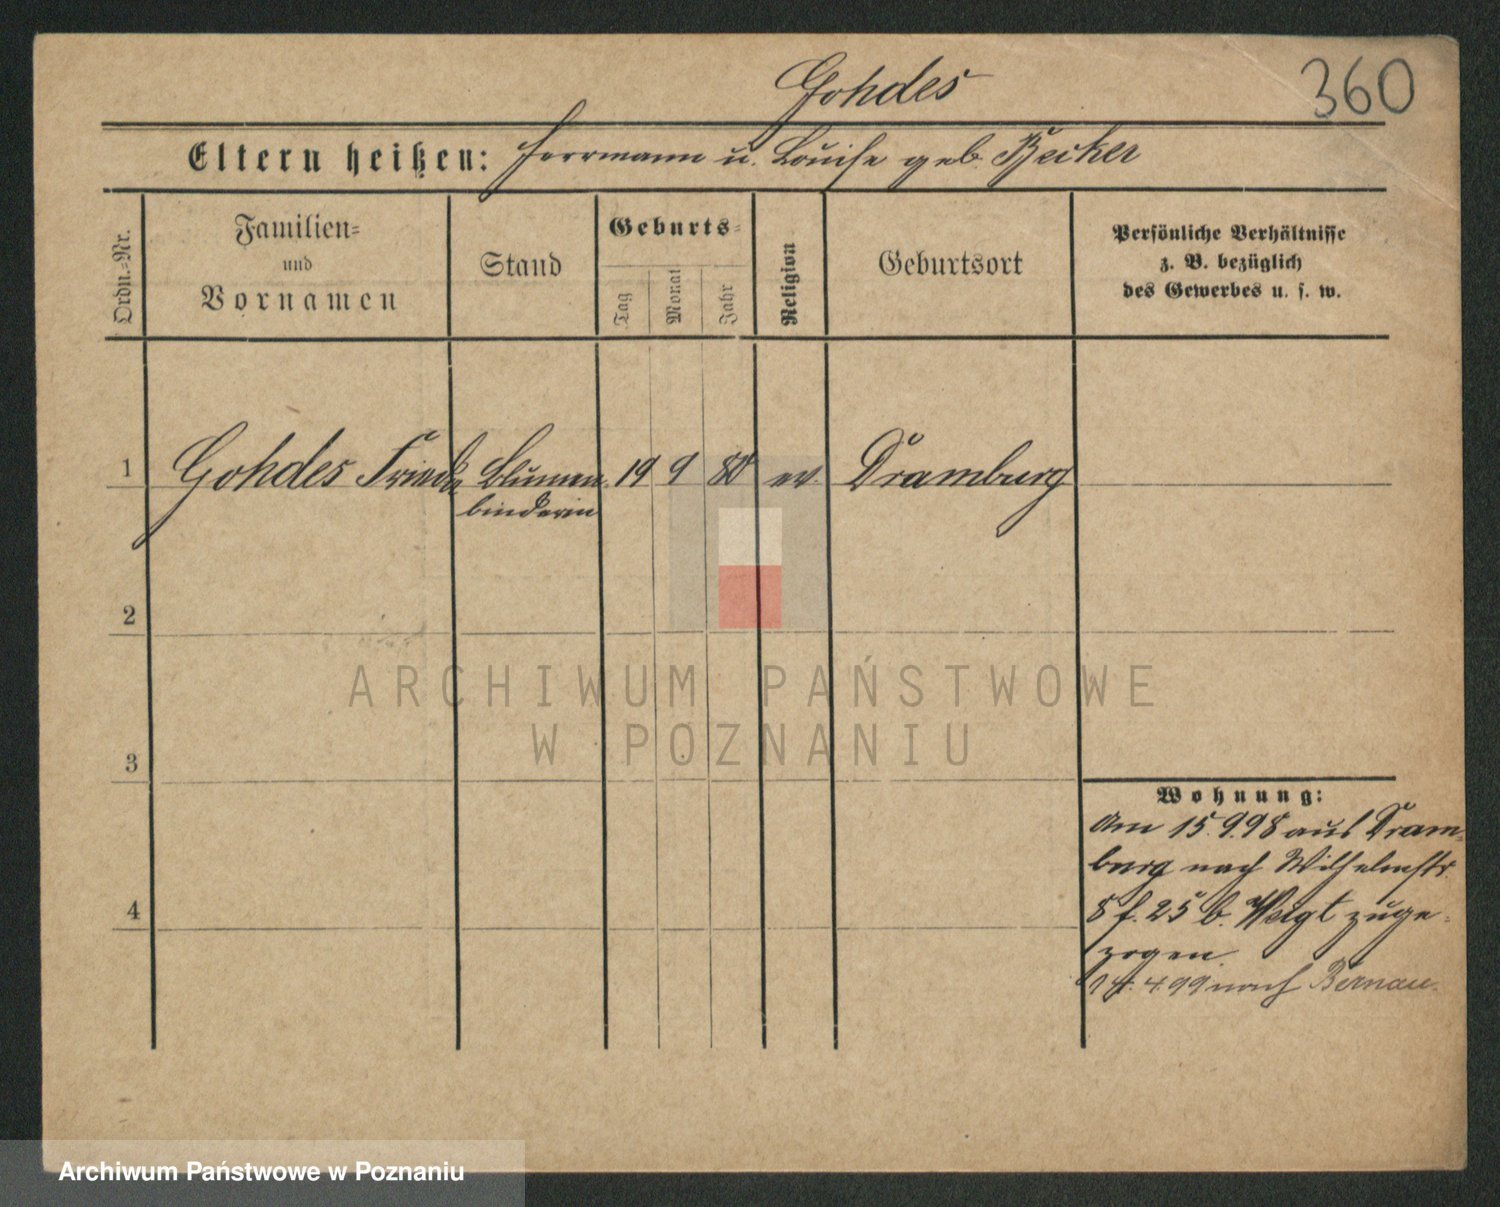 Gohdes
360
Eltern heißen: Herrmann u. Louise geb. Becker
Ordn.=Nr.
Familien=
und
Vornamen
Stand
Geburts=
Tag
Monat
Jahr
Religion
Geburtsort
Persönliche Verhältnisse
z. B. bezüglich
des Gewerbes u. s. w.
1 Gohdes Frieda Blumen= 19 9 80 ev. Dramburg
binderin
2
ARCHIWUM PAŃSTWOWE
W POZNANIU
3
Wohnung:
Am 15.9.98 aus Dram=
burg nach Wilhelmstr.
8 f. 25 b. Voigt zuge=
zogen.
4
14.4.99 nach Bernau.
Archiwum Państwowe w Poznaniu